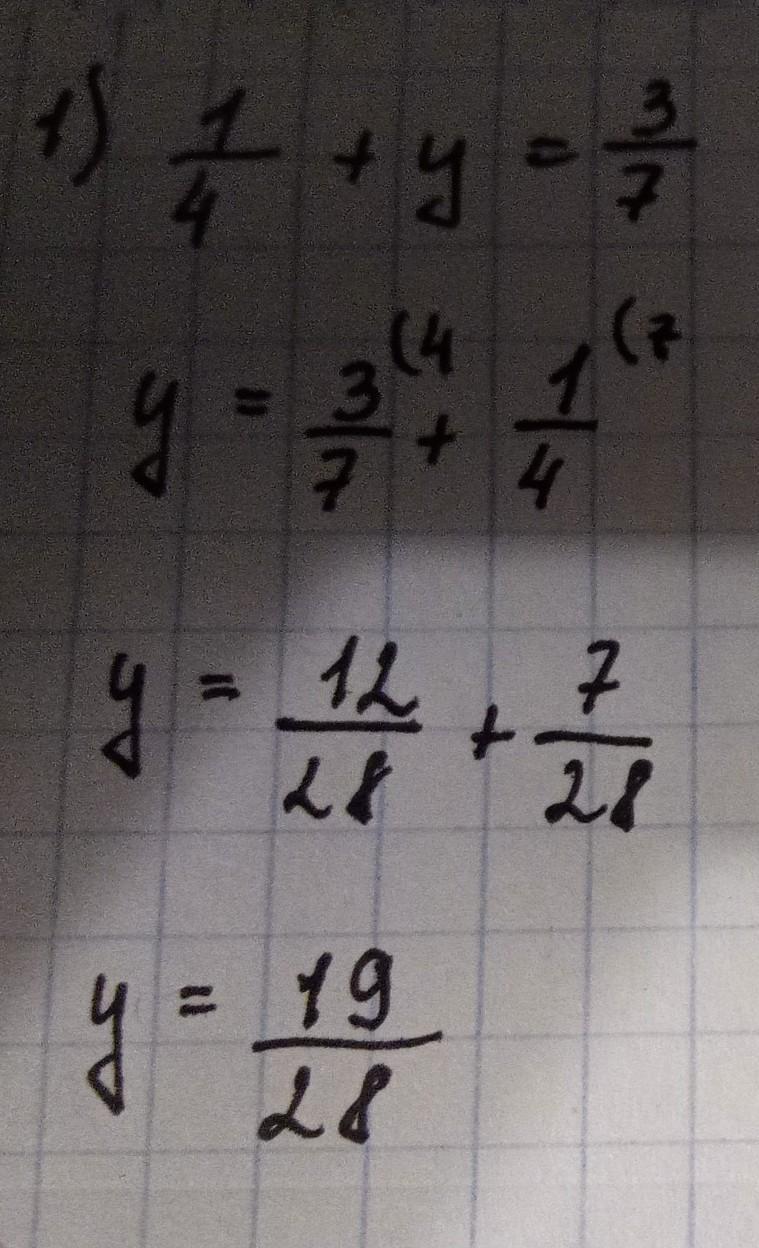 1) 1/4 + y = 3/7
y = 3/7 (4 + 1/4 (7
y = 12/28 + 7/28
y = 19/28